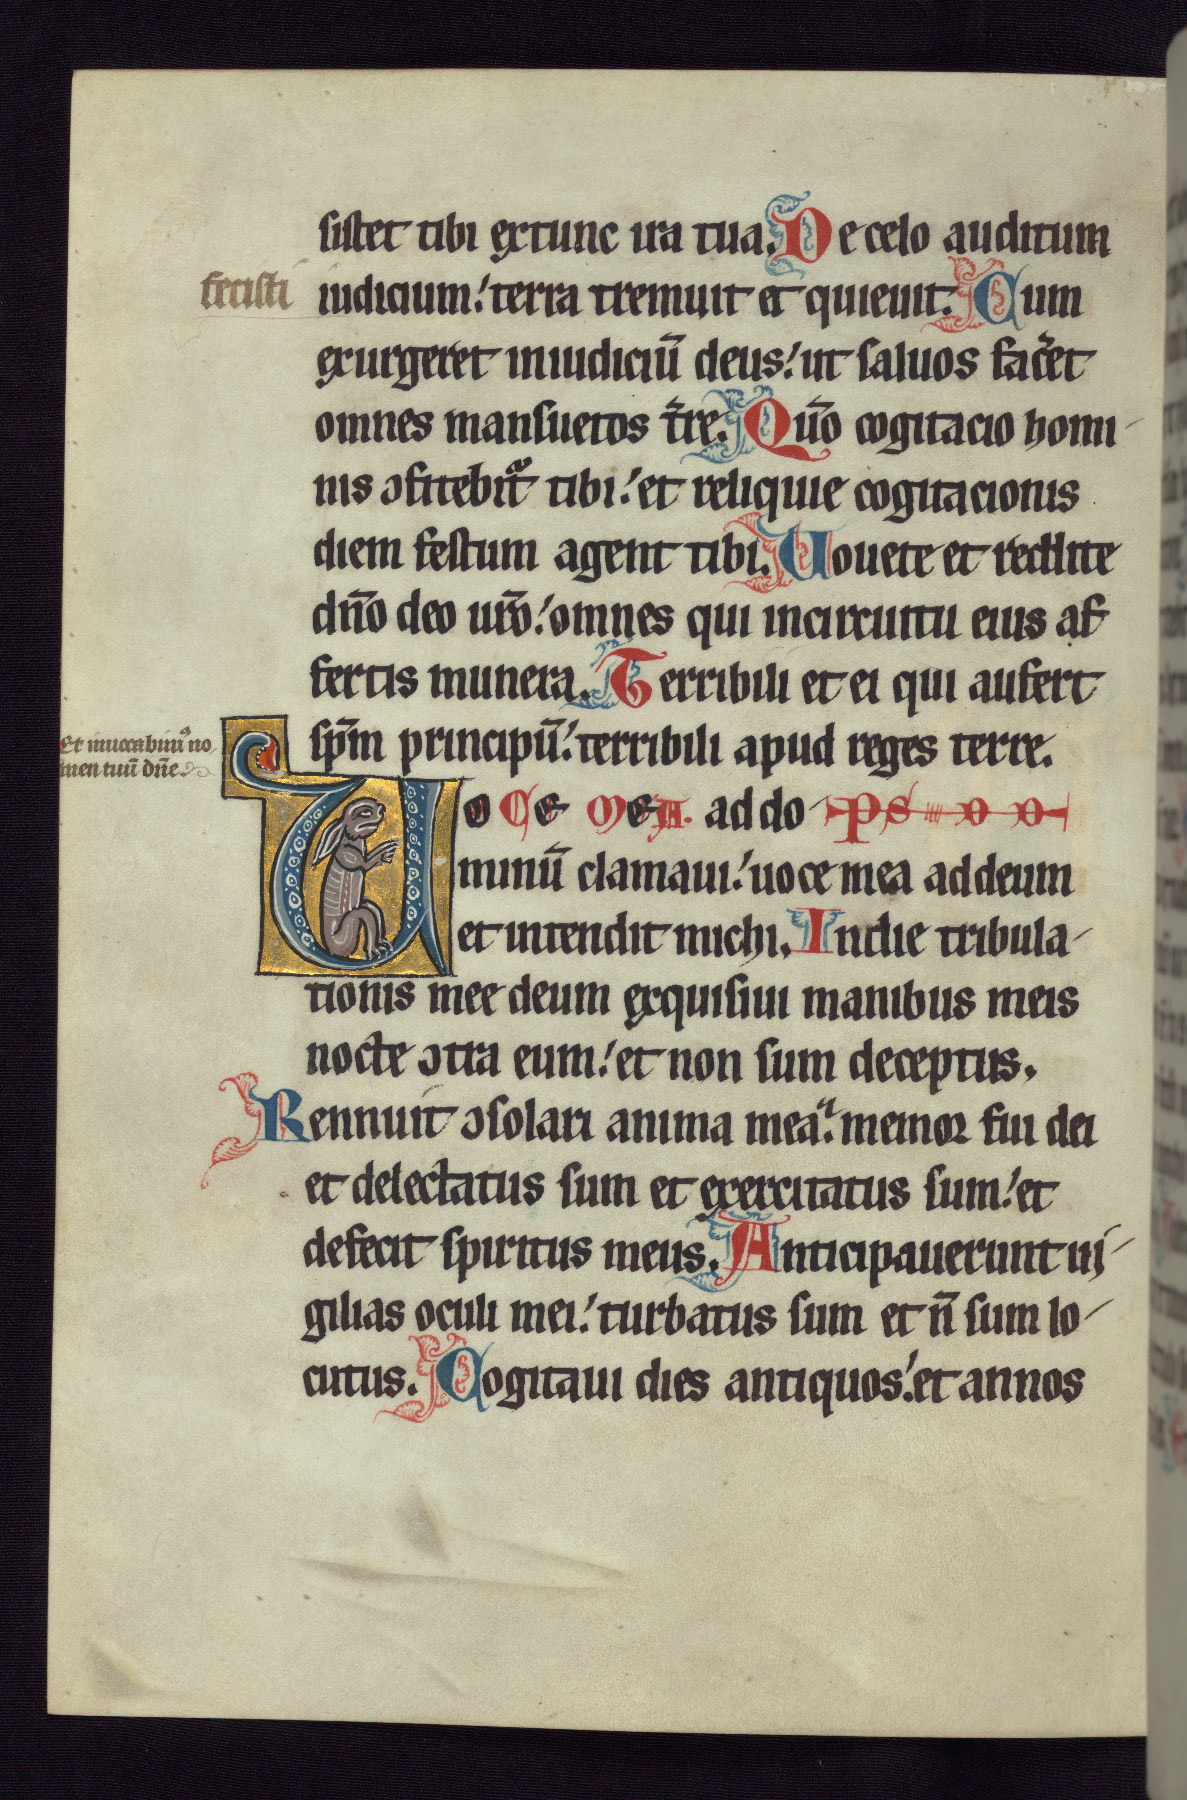 sistet tibi extunc ira tua. De celo auditum
fecisti
iudicium: terra tremuit et quieuit. Cum
exurgeret iniudiciū deus: ut saluos fac̄et
omnes mansuetos t̄re. Qūo cogitacio homi-
nis ↄfitebit᷑ tibi: et reliquie cogitacionis
diem festum agent tibi. Uouete et reddite
dn̄o deo ur̄o: omnes qui incircuitu eius af
fertis munera. Terribili et ei qui aufert
Et inuocabim᷒ no
men tuū dn̄e
sp̄m principū: terribili apud reges terre.
UoCe MeA. ad do-
minū clamaui: uoce mea addeum
et intendit michi. Indie tribula-
tionis mee deum exquisiui manibus meis
nocte ↄtra eum: et non sum deceptus.
Rennuit ↄsolari anima mea: memor fui dei
et delectatus sum et exercitatus sum: et
defecit spiritus meus. Anticipauerunt ui-
gilias oculi mei: turbatus sum et n̄ sum lo-
cutus. Cogitaui dies antiquos: et annos